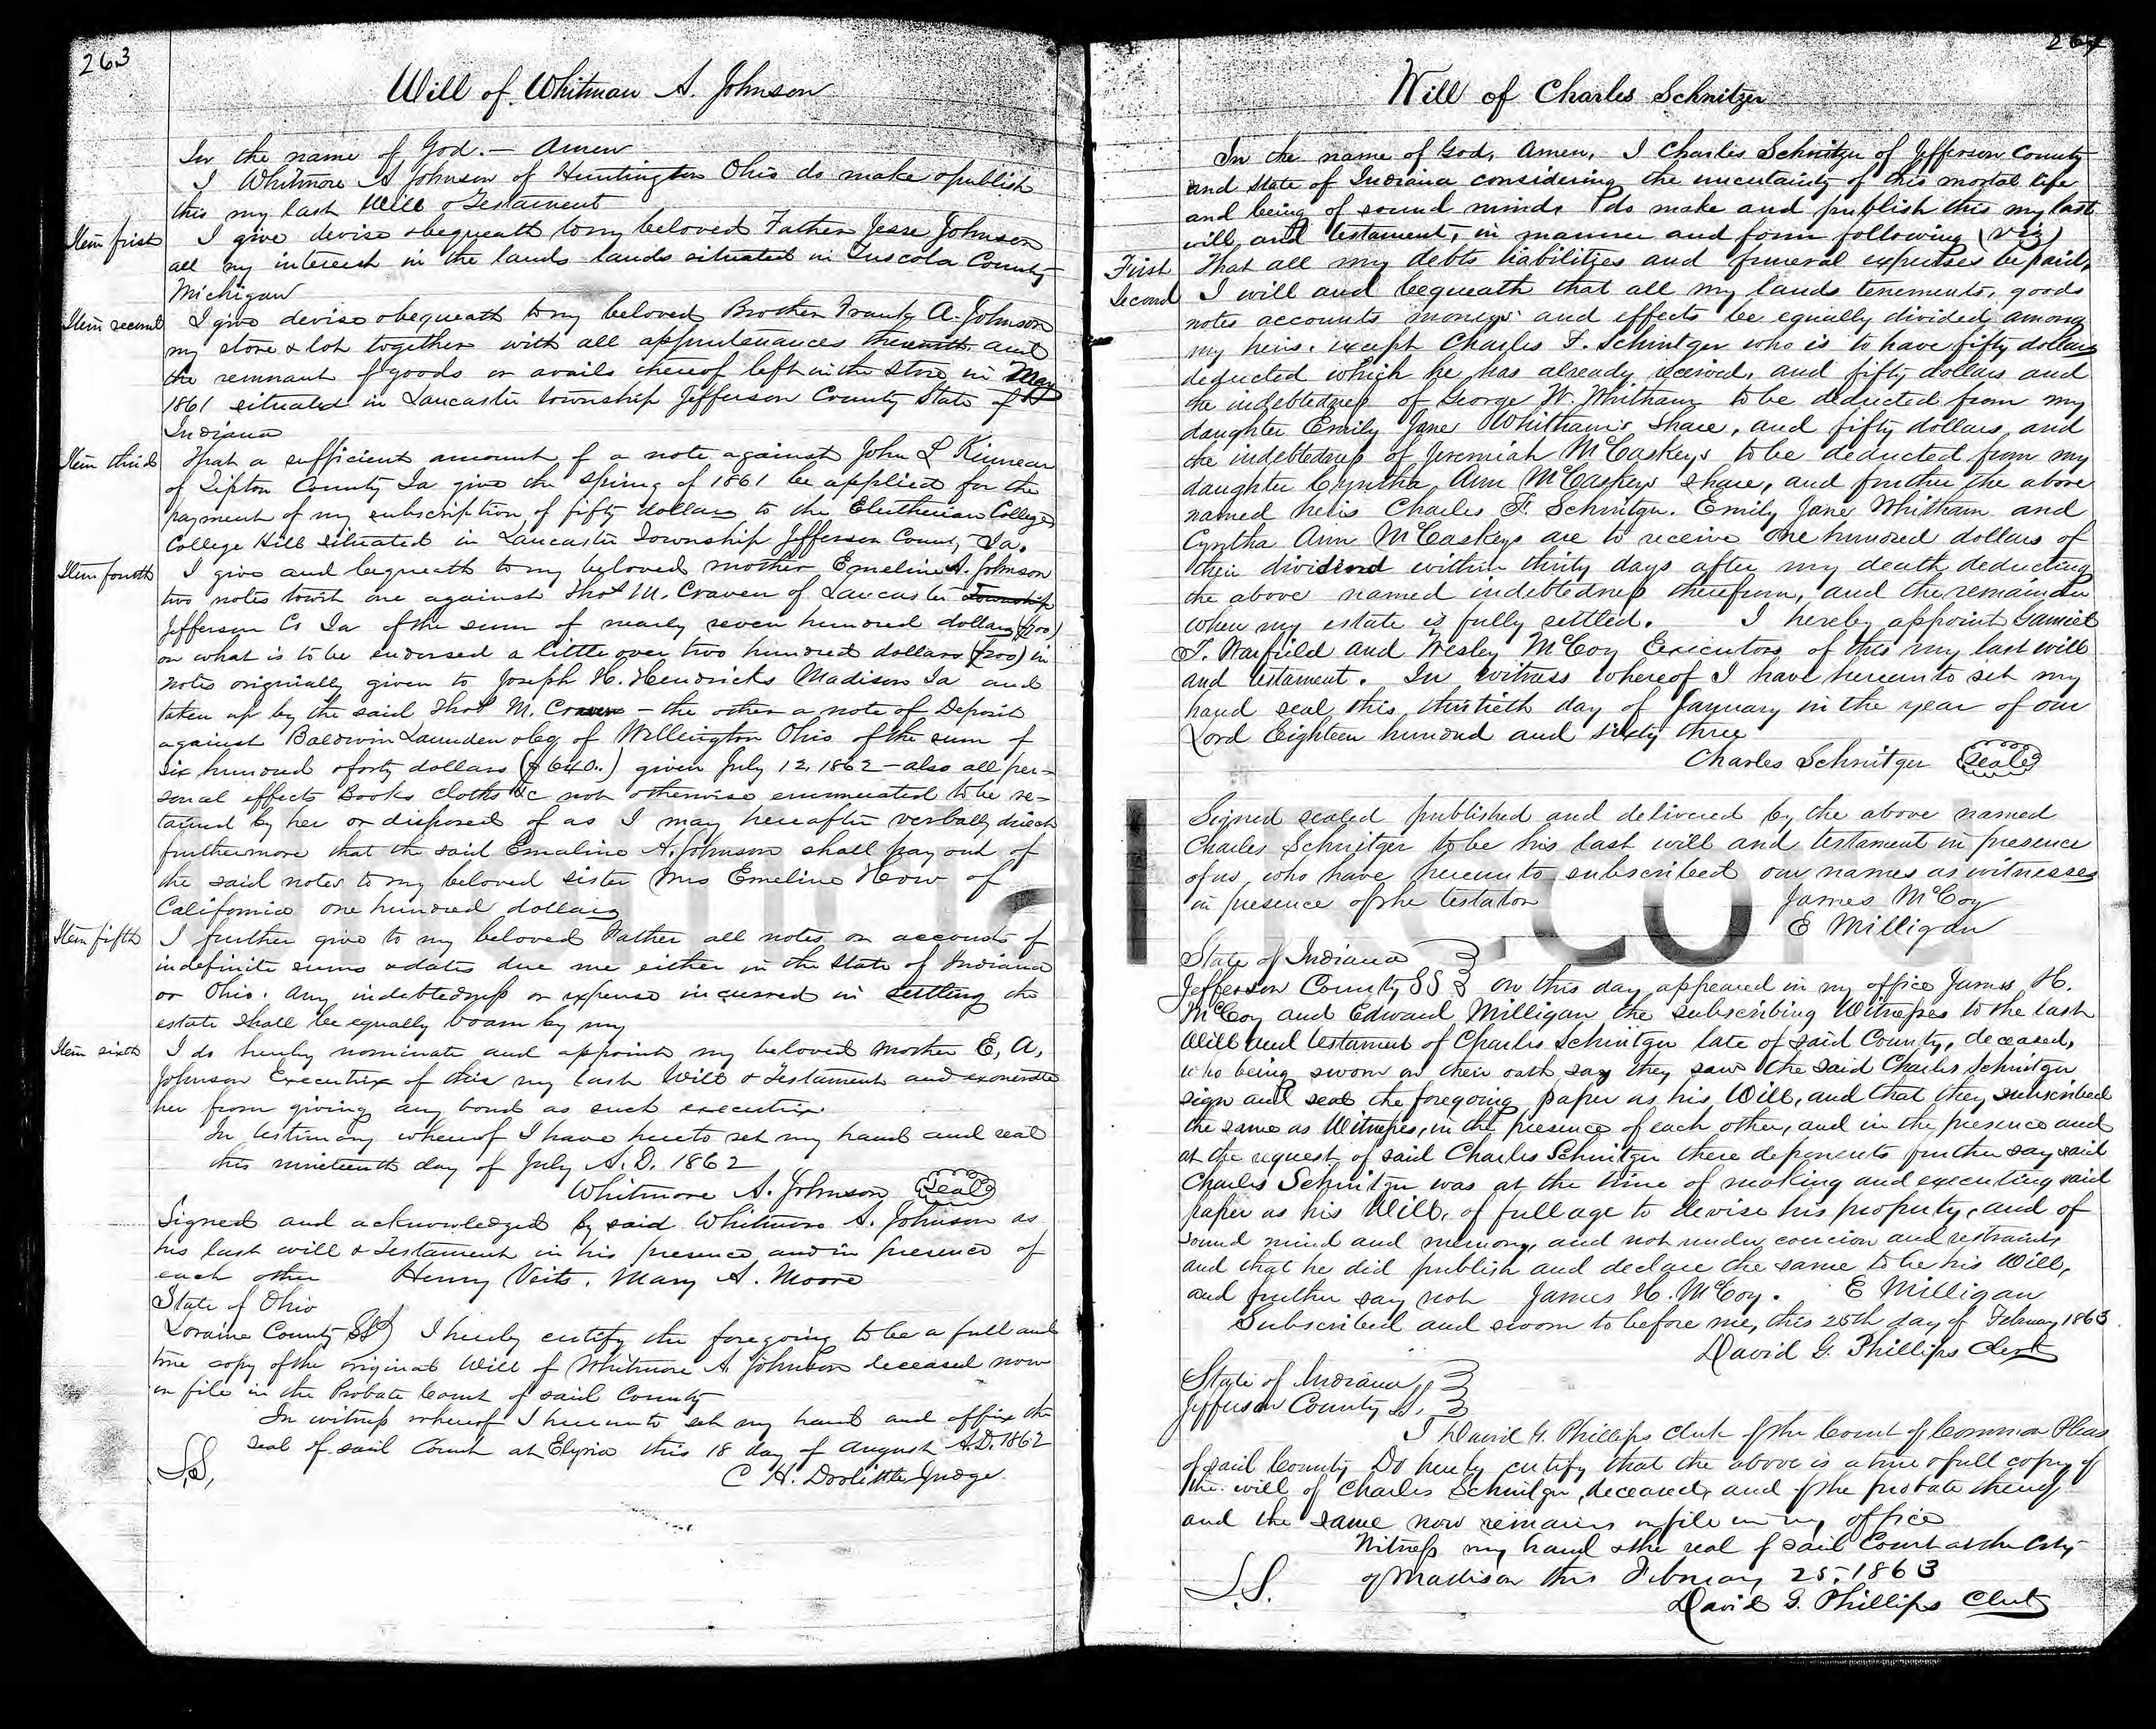 263
Will of Whitman A. Johnson
In the name of God. — Amen
I Whitmore A Johnson of Huntington Ohio do make & publish
this my last Will & Testament
Item first I give devise & bequeath to my beloved Father Jesse Johnson
all my interest in the lands lands situated in Tuscola County
Michigan
Item second I give devise & bequeath to my beloved Brother Frank A. Johnson
my store & lot together with all appurtenances therewith and
the remnant of goods or avails thereof left in the store in May
1861 situated in Lancaster township Jefferson County State of
Indiana
Item third That a sufficient amount of a note against John L Kinnear
of Tipton County Ia give the spring of 1861 be applied for the
payment of my subscription of fifty dollars to the Eleutherian College
College Hill situated in Lancaster Township Jefferson County Ia.
Item fourth I give and bequeath to my beloved mother Emeline A. Johnson
two notes towit one against Thos M. Craven of Lancaster Township
Jefferson Co Ia of the sum of nearly seven hundred dollars ($700)
on what is to be endorsed a little over two hundred dollars ($200) in
notes originally given to Joseph H. Hendricks Madison Ia and
taken up by the said Thos M. Craven – the other a note of Deposit
against Baldwin Launden & Co of Wellington Ohio of the sum of
six hundred & forty dollars ($640.) given July 12, 1862 – also all per=
sonal effects Books cloths &c not otherwise enumerated to be re=
tained by her or disposed of as I may hereafter verbally direct
furthermore that the said Emaline A. Johnson shall pay out of
the said notes to my beloved sister Mrs Emeline How of
California one hundred dollars
Item fifth I further give to my beloved Father all notes or accounts of
indefinite sums & dates due me either in the State of Indiana
or Ohio. Any indebtedness or expense incurred in settling the
estate shall be equally boarn by my
Item sixth I do hereby nominate and appoint my beloved Mother E. A.
Johnson Executrix of this my last Will & Testament and exonerate
her from giving any bond as such executrix.
In testimony whereof I have hereto set my hand and seal
this nineteenth day of July A.D. 1862
Whitmore A. Johnson Seal
Signed and acknowledged by said Whitmore A. Johnson as
his last will & Testament in his presence and in presence of
each other Henry Veits. Mary A. Moore
State of Ohio
Loraine County SS) I hereby certify the foregoing to be a full and
true copy of the original Will of Whitmore A Johnson deceased now
on file in the Probate Court of said County
In witness whereof I hereunto set my hand and affix the
seal of said Court at Elyria this 18 day of August A.D. 1862
L.S. C H. Doolittle Judge
264
Will of Charles Schnitzer
In the name of God, Amen, I Charles Schnitzer of Jefferson County
and State of Indiana considering the uncertainty of this mortal life
and being of sound mind, do make and publish this my last
will and testament, in manner and form following (viz)
First That all my debts liabilities and funeral expenses be paid.
Second I will and bequeath that all my lands tenements, goods
notes accounts moneys and effects be equally divided among
my heirs, except Charles F. Schnitzer who is to have fifty dollars
deducted which he has already received, and fifty dollars and
the indebtedness of George W. Whitham to be deducted from my
daughter Emily Jane Whitham's share, and fifty dollars and
the indebtedness of Jeremiah McCaskeys to be deducted from my
daughter Cyntha Ann McCaskeys share, and further the above
named heirs Charles F. Schnitzer. Emily Jane Whitham and
Cyntha Ann McCaskeys are to receive one hundred dollars of
their dividend within thirty days after my death deducting
the above named indebtedness therefrom, and the remainder
when my estate is fully settled. I hereby appoint Gamiel
T. Warfield and Wesley McCoy Executors of this my last will
and testament. In witness whereof I have hereunto set my
hand seal this thirtieth day of January in the year of our
Lord Eighteen hundred and sixty three
Charles Schnitzer Seal
Signed sealed published and delivered by the above named
Charles Schnitzer to be his last will and testament in presence
of us who have hereunto subscribed our names as witnesses
in presence of the testator James McCoy
E Milligan
State of Indiana
Jefferson County SS On this day appeared in my office James H.
McCoy and Edward Milligan the subscribing Witnesses to the last
Will and testament of Charles Schnitzer late of said County, deceased,
who being sworn on their oath say they saw the said Charles Schnitzer
sign and seal the foregoing paper as his Will, and that they subscribed
the same as Witnesses, in the presence of each other, and in the presence and
at the request of said Charles Schnitzer these deponents further say said
Charles Schnitzer was at the time of making and executing said
paper as his Will, of full age to devise his property, and of
sound mind and memory, and not under coercion and restraint,
and that he did publish and declare the same to be his Will,
and further say not James H. McCoy. E Milligan
Subscribed and sworn to before me, this 25th day of February 1863
David G. Phillips Clerk
State of Indiana
Jefferson County SS,
I David G. Phillips Clerk of the Court of Common Pleas
of said County Do hereby certify that the above is a true & full copy of
the will of Charles Schnitzer, deceased, and of the probate thereof
and the same now remains on file in my office
Witness my hand & the seal of said Court at the City
L.S. of Madison this February 25, 1863
David G. Phillips Clerk